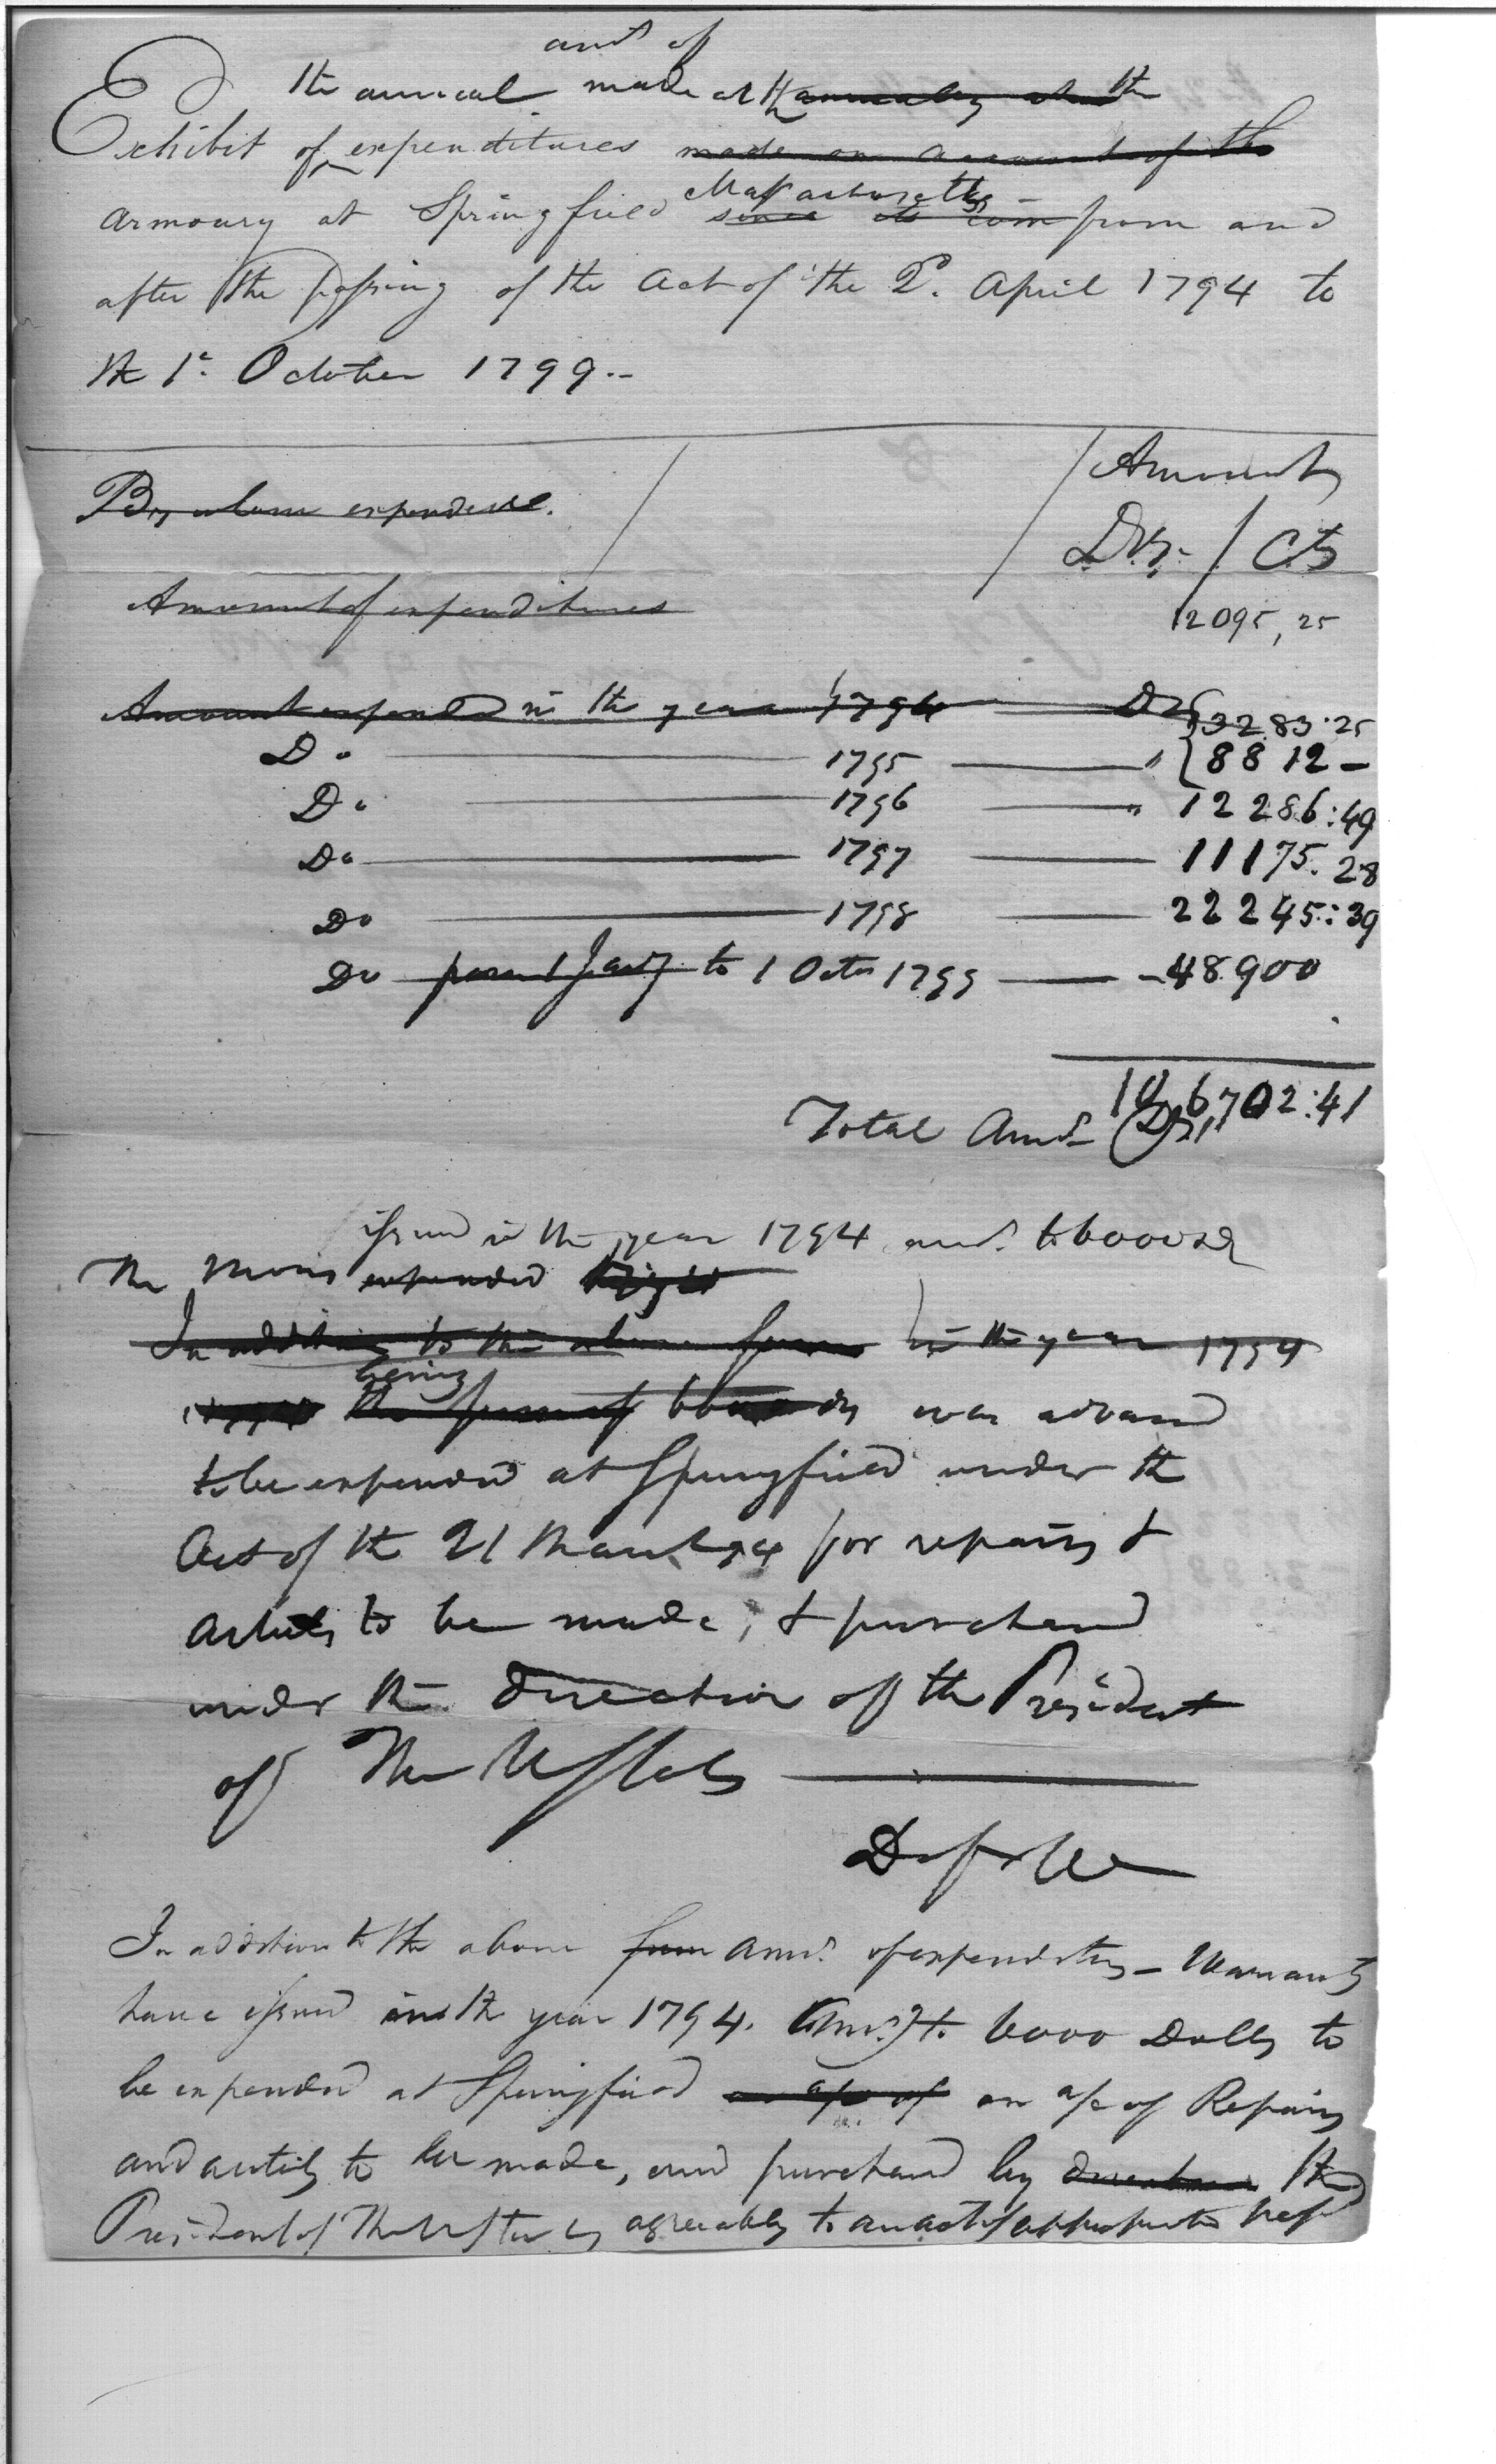 amt of
the annual made at the annually at the
Exhibit of expenditures made on account of the
Massachusetts
armoury at Springfield since its com from and
after the passing of the Act of the 2d. April 1794 to
the 1st. October 1799.-
Amount
By whom expended.
Drs. / Cts
Amount of expenditures
12095,25
Amount expended in the year 1794 Drs 3283.25
Do 1795 " 8812 -
Do 1796 " 12286:49
Do 1797 11175.28
Do 1798 22245:39
Do from 1 Jany to 1 Octr 1799 - 48900
106702:41
Total Amt. Drs,
issued in the year 1794 amt. to 6000 Ds
The Monies expended
In addition to the above sum in the year 1794
being
the sum of 6000 Ds was advanced
to be expended at Springfield under the
Act of the 21 March 94 for repairs &
articles to be made, & purchased
under the direction of the President
of The U States
D of W
In addition to the above sum amt. of expenditures - Warrants
have issued in the year 1794. Amtg to 6000 Dolls to
be expended at Springfield on a/c of on a/c of Repairs
and articles to be made, and purchased by direction the
President of The U States agreeably to an act of appropriation pass